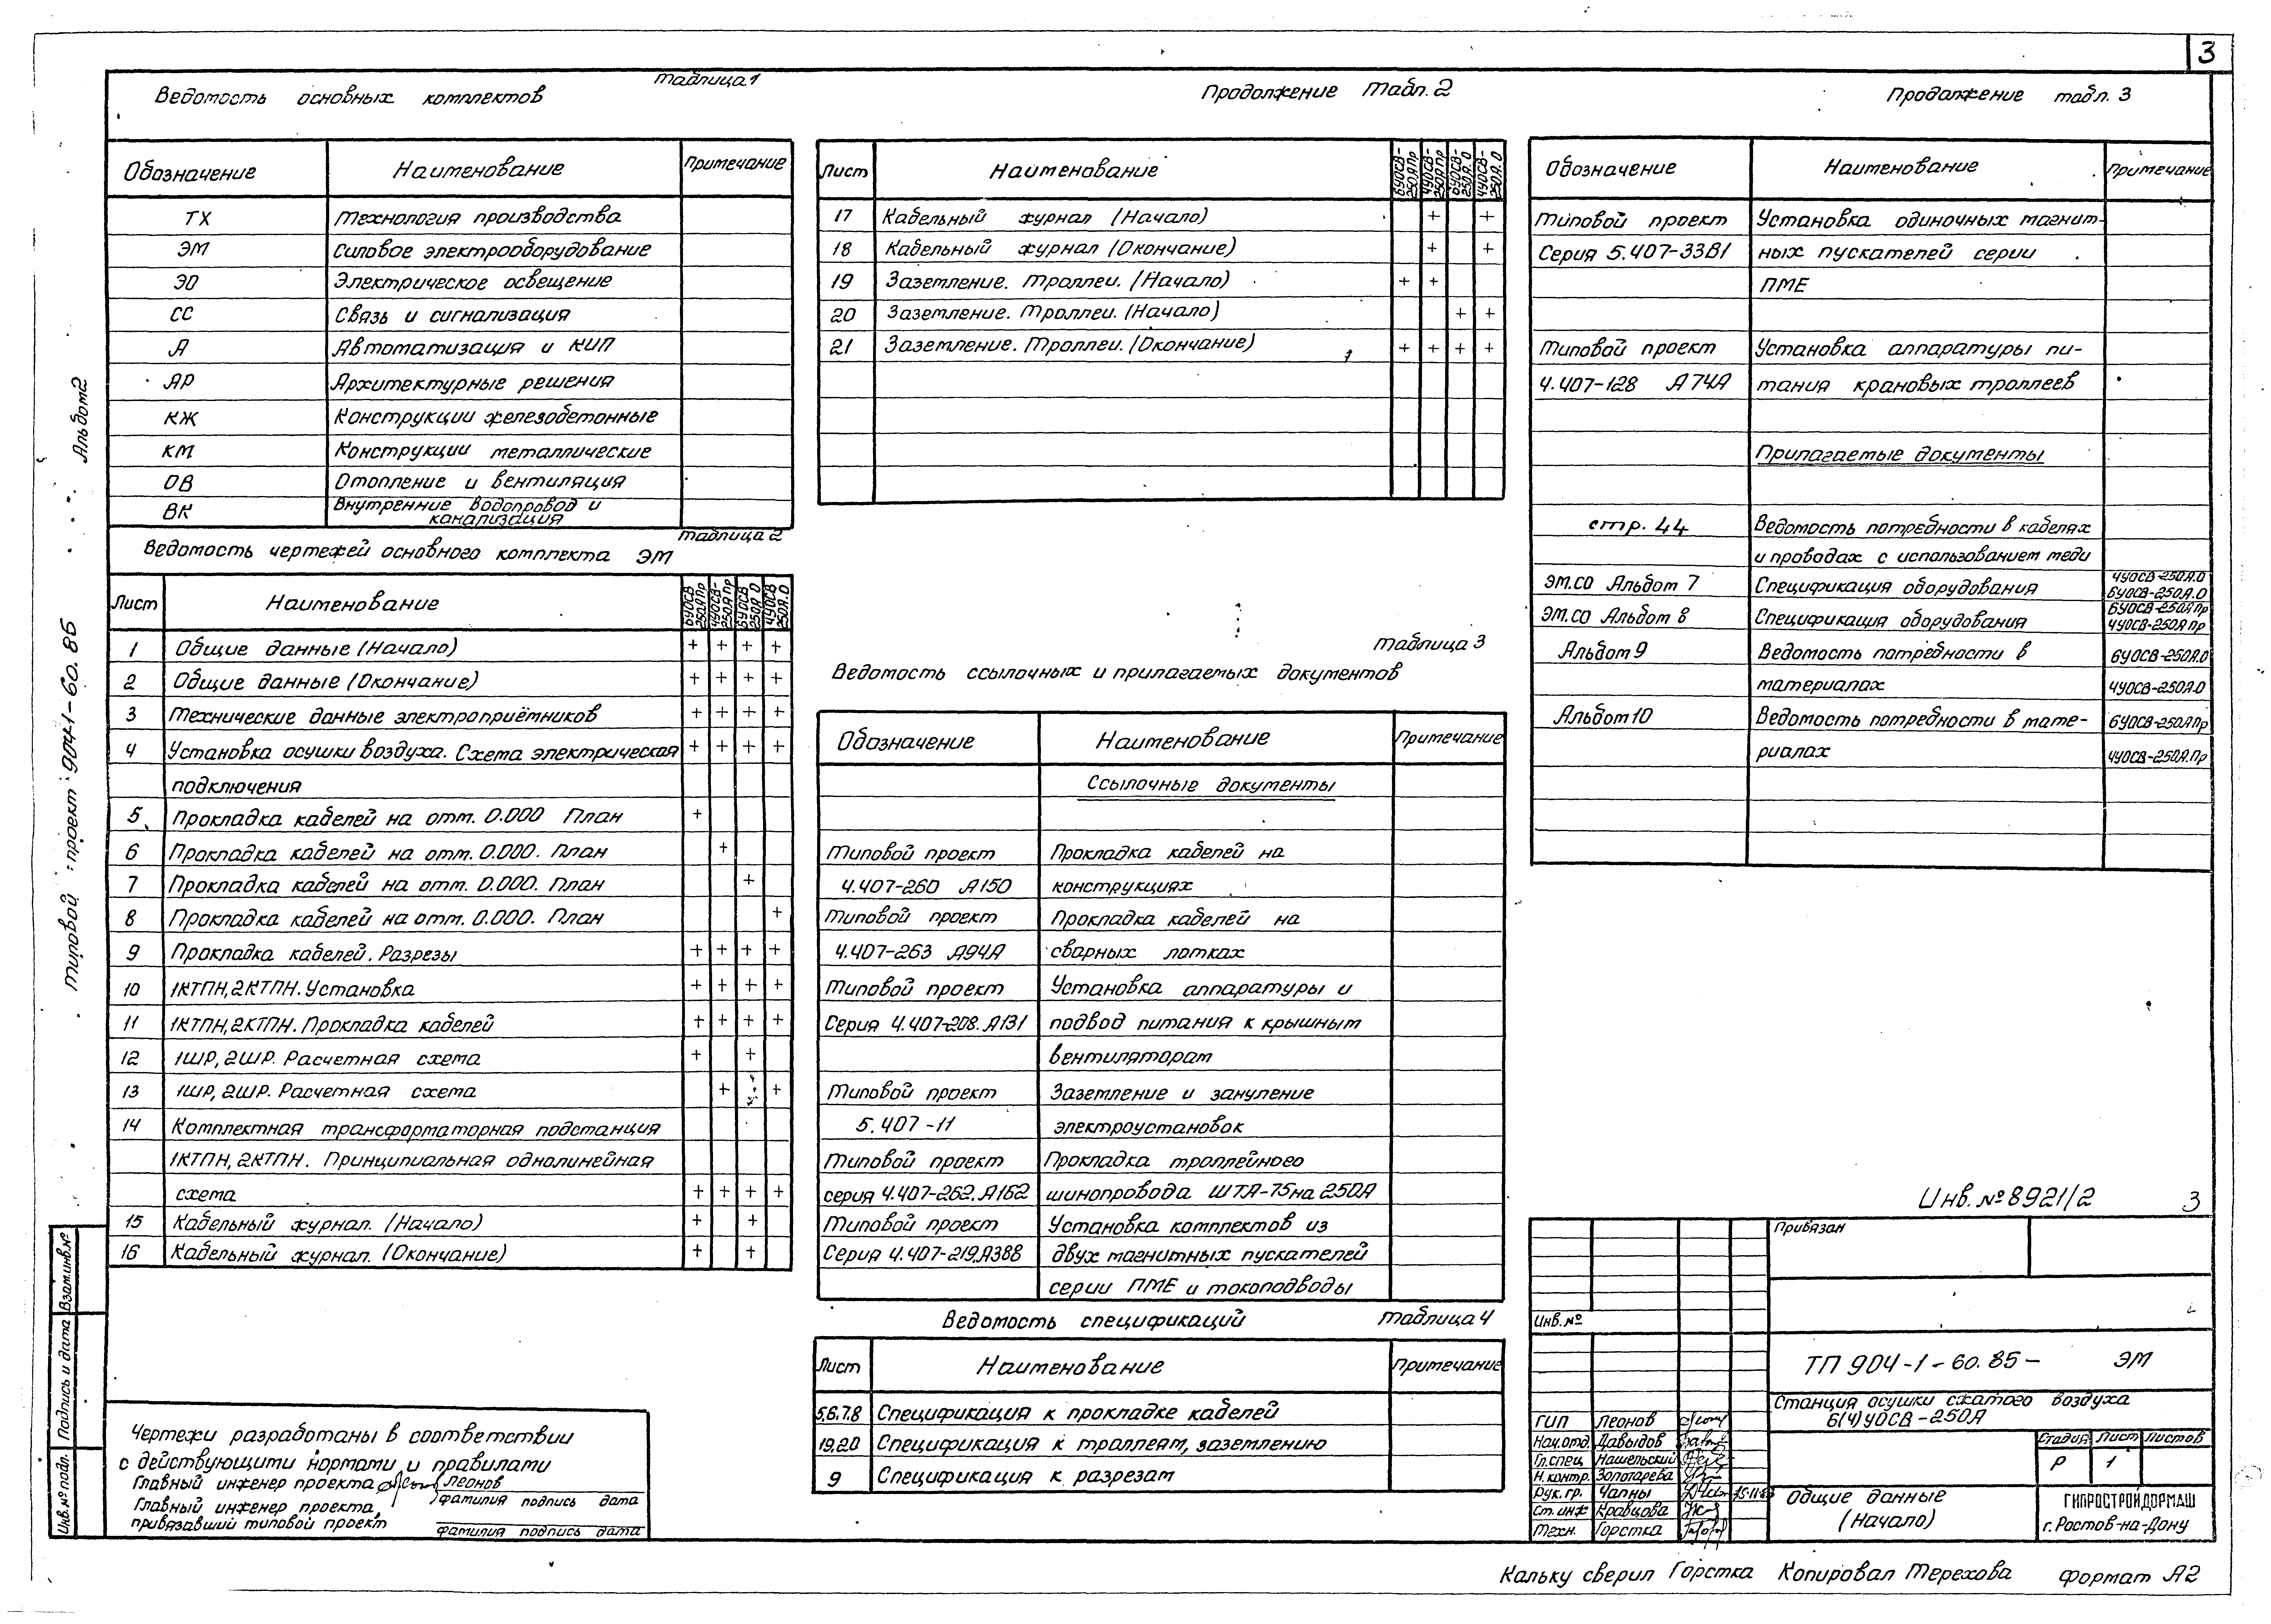 3
Таблица 1
Ведомость основных комплектов
Обозначение Наименование Примечание
ТХ Технология производства
ЭМ Силовое электрооборудование
ЭО Электрическое освещение
СС Связь и сигнализация
А Автоматизация и КИП
АР Архитектурные решения
КЖ Конструкции железобетонные
КМ Конструкции металлические
ОВ Отопление и вентиляция
ВК Внутренние водопровод и
канализация
Таблица 2
Ведомость чертежей основного комплекта ЭМ
Лист Наименование 6УОСВ 250А Пр 4УОСВ- 250А Пр 6УОСВ 250А О 4УОСВ 250А.О
1 Общие данные (Начало) + + + +
2 Общие данные (Окончание) + + + +
3 Технические данные электроприёмников + + + +
4 Установка осушки воздуха. Схема электрическая + + + +
подключения
5 Прокладка кабелей на отм. 0.000 План +
6 Прокладка кабелей на отм. 0.000. План +
7 Прокладка кабелей на отм. 0.000. План +
8 Прокладка кабелей на отм. 0.000. План +
9 Прокладка кабелей. Разрезы + + + +
10 1КТПН, 2КТПН. Установка + + + +
11 1КТПН, 2КТПН. Прокладка кабелей + + + +
12 1ШР, 2ШР. Расчетная схема + +
13 1ШР, 2ШР. Расчетная схема + +
14 Комплектная трансформаторная подстанция
1КТПН, 2КТПН. Принципиальная однолинейная
схема + + + +
15 Кабельный журнал. (Начало) + +
16 Кабельный журнал. (Окончание) + +
Чертежи разработаны в соответствии
с действующими нормами и правилами
Главный инженер проекта Леонов
фамилия подпись дата
Главный инженер проекта,
привязавший типовой проект
фамилия подпись дата
Продолжение табл. 2
Лист Наименование 6УОСВ- 250А Пр 4УОСВ- 250А Пр 6УОСВ- 250А.О 4УОСВ- 250А.О
17 Кабельный журнал (Начало) + +
18 Кабельный журнал (Окончание) + +
19 Заземление. Троллеи. (Начало) + +
20 Заземление. Троллеи. (Начало) + +
21 Заземление. Троллеи. (Окончание) + + + +
Таблица 3
Ведомость ссылочных и прилагаемых документов
Обозначение Наименование Примечание
Ссылочные документы
Типовой проект Прокладка кабелей на
4.407-260 А150 конструкциях
Типовой проект Прокладка кабелей на
4.407-263 А94А сварных лотках
Типовой проект Установка аппаратуры и
Серия 4.407-208. А131 подвод питания к крышным
вентиляторам
Типовой проект Заземление и зануление
5.407-11 электроустановок
Типовой проект Прокладка троллейного
серия 4.407-262. А162 шинопровода ШТА-75 на 250А
Типовой проект Установка комплектов из
Серия 4.407-219. А388 двух магнитных пускателей
серии ПМЕ и токоподводы
Ведомость спецификаций Таблица 4
Лист Наименование Примечание
5.6.7.8 Спецификация к прокладке кабелей
19,20 Спецификация к троллеям, заземлению
9 Спецификация к разрезам
Продолжение табл. 3
Обозначение Наименование Примечание
Типовой проект Установка одиночных магнит-
Серия 5.407-33В1 ных пускателей серии
ПМЕ
Типовой проект Установка аппаратуры пи-
4.407-128 А74А тания крановых троллеев
Прилагаемые документы
стр. 44 Ведомость потребности в кабелях
и проводах с использованием меди
ЭМ.СО Альбом 7 Спецификация оборудования 4УОСВ-250А.О 6УОСВ-250А.О
ЭМ.СО Альбом 8 Спецификация оборудования 6УОСВ-250А Пр 4УОСВ-250А Пр
Альбом 9 Ведомость потребности в 6УОСВ-250А.О
материалах 4УОСВ-250А.О
Альбом 10 Ведомость потребности в мате- 6УОСВ-250А Пр
риалах 4УОСВ-250А.Пр
Инв. № 8921/2 3
Привязан
Инв. №
ТП 904-1-60.85- ЭМ
Станция осушки сжатого воздуха
6(4)УОСВ-250А
ГИП Леонов
Нач.отд. Давыдов
Гл.спец. Нашельский
Н.контр. Золотарева
Рук. гр. Чапны
Ст. инж Кравцова
Техн. Горстка
Стадия Лист Листов
Р 1
Общие данные
(Начало)
ГИПРОСТРОЙДОРМАШ
г. Ростов-на-Дону
Кальку сверил Горстка Копировал Терехова Формат А2
Типовой проект 904-1-60.85 Альбом 2
Взам.инв.№
Подпись и дата
Инв.№ подл.